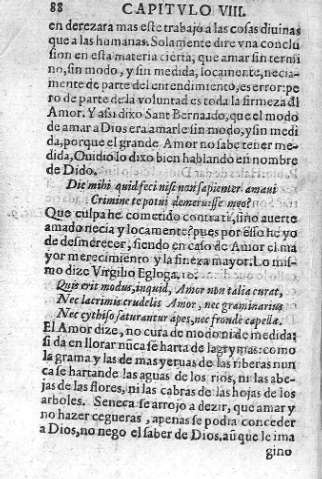 88 CAPITVLO VIII.
en derezara mas este trabajo a las cosas diuinas
que a las humanas. Solamente dire vna conclu
sion en esta materia cierta; que amar sin termi
no, sin modo, y sin medida, locamente, necia-
mente de parte del entendimiento, es error: pe
ro de parte de la voluntad es toda la firmeza dl
Amor. Y assi dixo Sant Bernardo, que el modo
de amar a Dios era amarle sin modo, y sin medi
da, porque el grande Amor no sabe tener me-
dida, Ouidio lo dixo bien hablando en nombre
de Dido.
Dic mihi quid feci nisi non sapienter amaui
Crimine te potui demeruisse meo?
Que culpa he cometido contra ti, sino auerte
amado necia y locamente? pues por esso he yo
de desmerecer, siendo en caso de Amor el ma
yor merecimiento y la fineza mayor. Lo mis-
mo dize Virgilio Egloga. 10.
Quis erit modus, inquid, Amor non talia curat,
Nec lacrimis crudelis Amor, nec graminariuis
Nec cythiso saturantur apes, nec fronde capellæ.
El Amor dize, no cura de modo ni de medida;
si da en llorar nũca se harta de lagrymas: como
la grama y las de mas yeruas de las riberas nun
ca se hartan de las aguas de los rios, ni las abe-
jas de las flores, ni las cabras de las hojas de los
arboles. Seneca se arrojo a dezir, que amar y
no hazer cegueras, apenas se podia conceder
a Dios, no nego el saber de Dios, aũ que le ima
gino